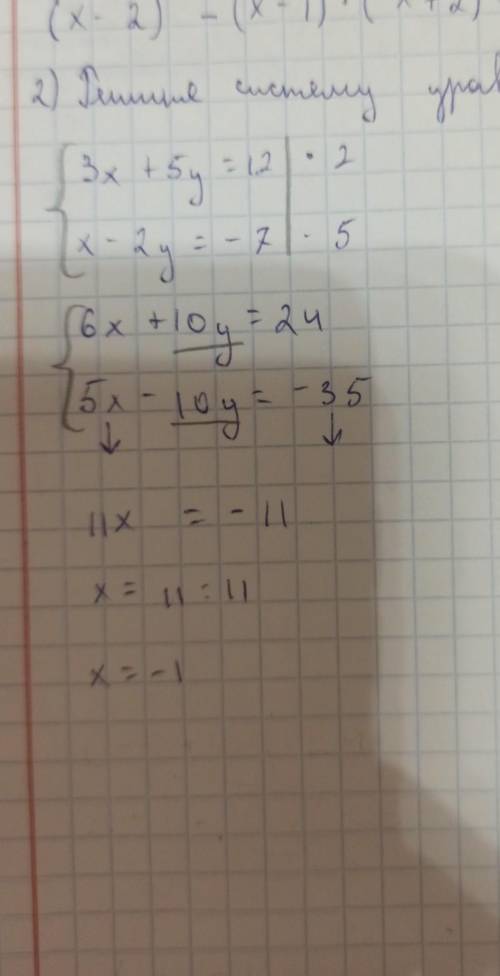 (x - 2) - (x - 1) · (x + 2)
2) Решите систему урав
{ 3x + 5y = 12 | · 2
x - 2y = -7 | · 5
{ 6x + 10y = 24
5x - 10y = -35
↓ ↓
11x = -11
x = 11 : 11
x = -1